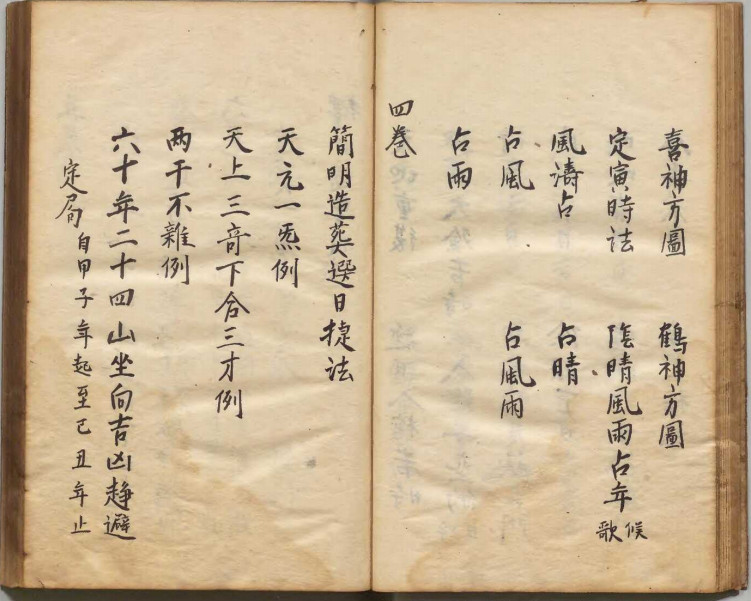 喜神方圖　鶴神方圖
定寅時法　陰晴風雨占年候歌
風濤占　占晴
占風　占風雨
占雨
四巻
簡明造葬選日捷法
天元一炁例
天上三竒下合三才例
两干不雜例
六十年二十四山坐向吉凶趍避
定局自甲子年起至己丑年止